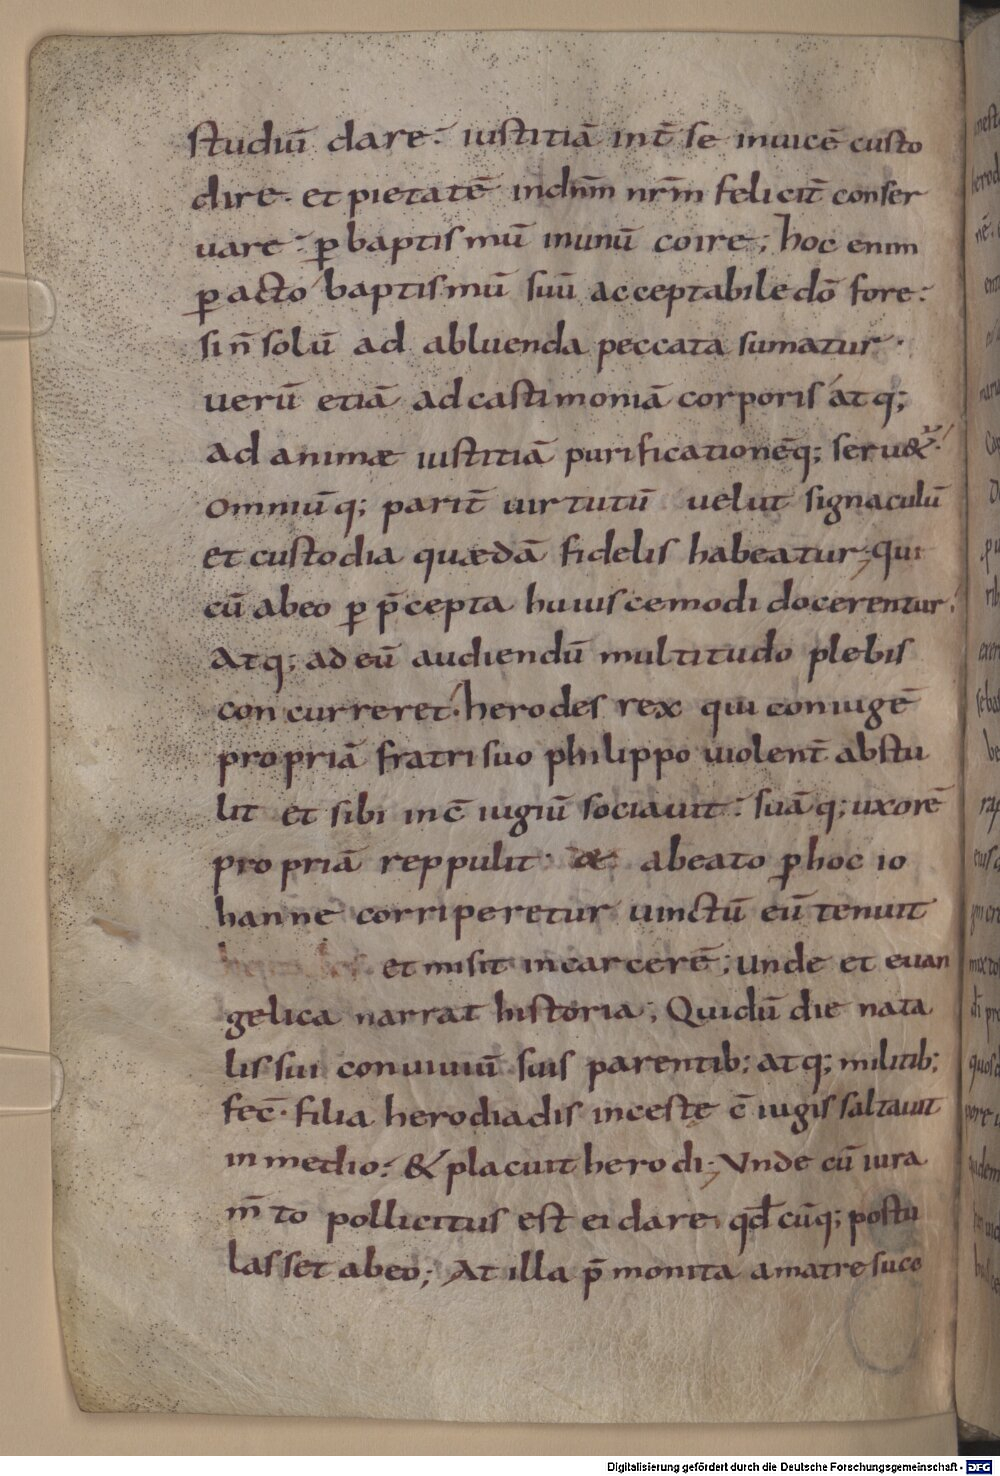 studiū dare· iustitiā int̄ se inuicē custo
dire· et pietatē indn̄m nr̄m feliciт̄ conser
uare· ꝑ baptismū inunū coire; hoc enim
ꝑ acto baptismū suū acceptabile dō fore·
si n̄ solū ad abluenda peccata sumatur·
uerū etiā ad castimoniā corporis atq;
ad animæ iustitiā purificationēq; seru&ur·
omniūq; parit̄ uirtutū uelut signaculū
et custodia quædā fidelis habeatur; qui
cū abeo ꝑ p̄cepta huiuscemodi docerentur·
Atq; ad eū audiendū multitudo plebis
concurreret· herodes rex qui coniugē
propriā fratri suo philippo uiolent̄ abstu
lit et sibi in c̄iugiū sociauit· suāq; uxorē
propriā reppulit· abeato ꝑ hoc io
hanne corriperetur uinctū eū tenuit
et misit incarcerē; Unde et euan
gelica narrat historia; Qui dū die nata
lis sui conuiuiū suis parentib; atq; militib;
fec̄· filia herodiadis inceste c̄iugis saltauit
in medio· & placuit herodi; Vnde cū iura
m̄to pollicitus est ei dare· qd̄ cūq; postu
lasset abeo; At illa p̄monita amatre suco
Digitalisierung gefördert durch die Deutsche Forschungsgemeinschaft - DFG